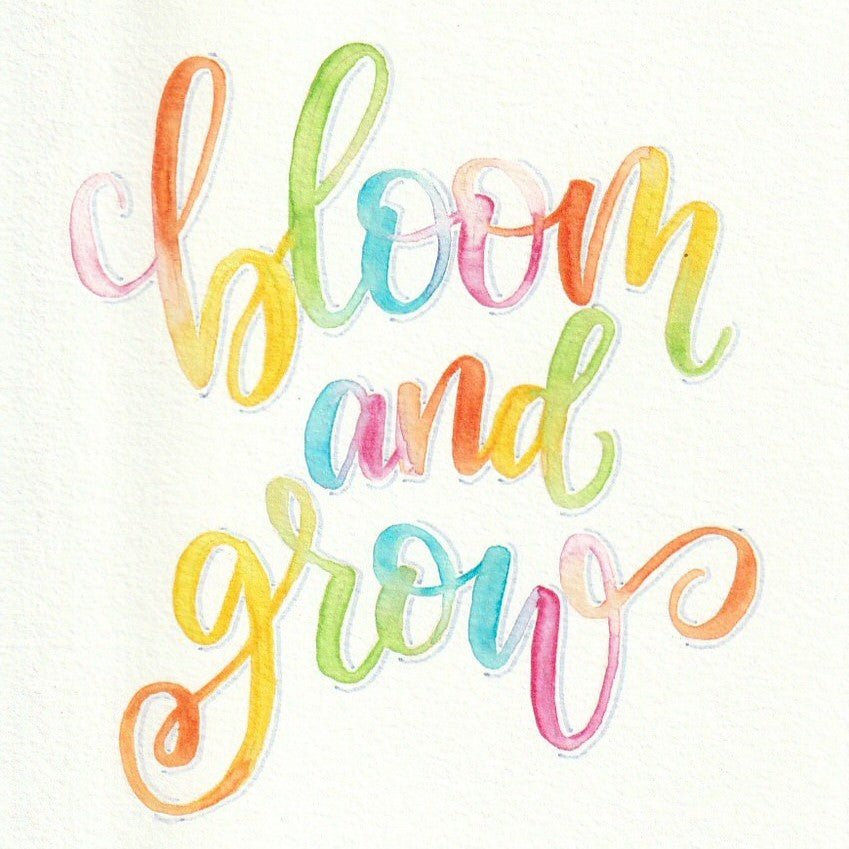 bloom
and
grow